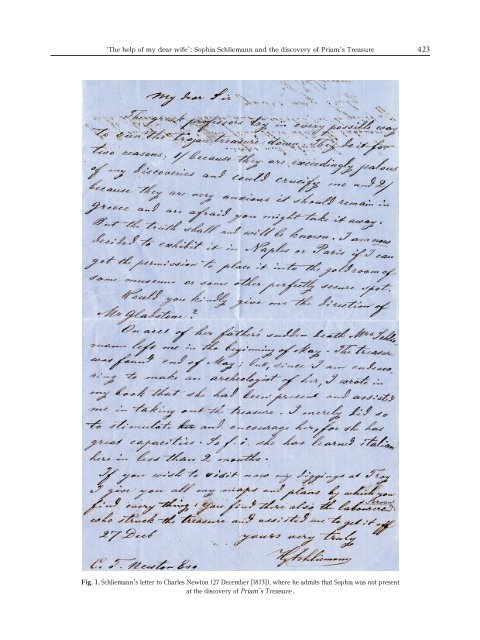 'The help of my dear wife': Sophia Schliemann and the discovery of Priam's Treasure 423
My dear Sir
The greek professors try in every possible way
to run the trojan treasure down. They do it for
two reasons, 1/ because they are exceedingly jealous
of my discoveries and could crucify me and 2/
because they are very anxious it should remain in
Greece and are afraid you might take it away.
But the truth shall and will be known. I am now
decided to exhibit it in Naples or Paris if I can
get the permission to place it into the goldroom of
some museum or some other perfectly secure spot.
Would you kindly give me the direction of
Mr Gladstone?
On acct of her father's sudden death Mrs Schlie
mann left me in the beginning of May. The treasure
was found end of May; but, since I am endeavo
ring to make an archeologist of her, I wrote in
my book that she had been present and assisted
me in taking out the treasure. I merely did so
to stimulate and encourage her, for she has
great capacities. So f. i. she has learned italian
here in less than 2 months.
If you wish to visit now my diggings at Troy
I give you all my maps and plans by which you
find every thing; you find there also the labourers
who struck the treasure and assisted me to get it off
27 Decb yours very truly
HySchliemann
C. T. Newton Esq
Fig. 1. Schliemann's letter to Charles Newton (27 December [1873]), where he admits that Sophia was not present
at the discovery of Priam's Treasure.